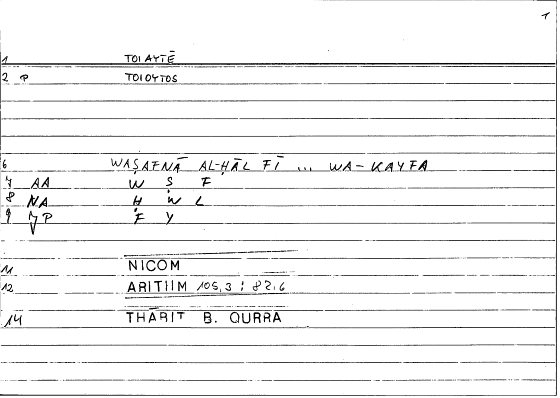 1
1 TOIAYTĒ
2 P TOIOYTOS
6 WAṢAFNĀ AL-ḤĀL FĪ ... WA-KAYFA
7 AA W Ṣ F
8 NA Ḥ W L
9 VP F Y
11 NICOM
12 ARITIIM 105,3 : 82.6
14 THĀRIT B. QURRA